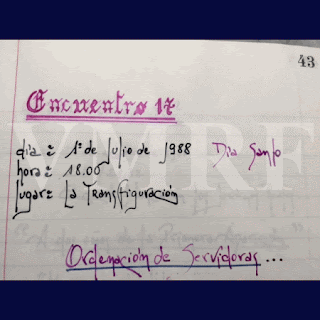 43
Encuentro 17
día = 1º de Julio de 1988 Día Santo
hora = 18.00
lugar = La Transfiguración
Ordenación de Servidoras...
VMRF